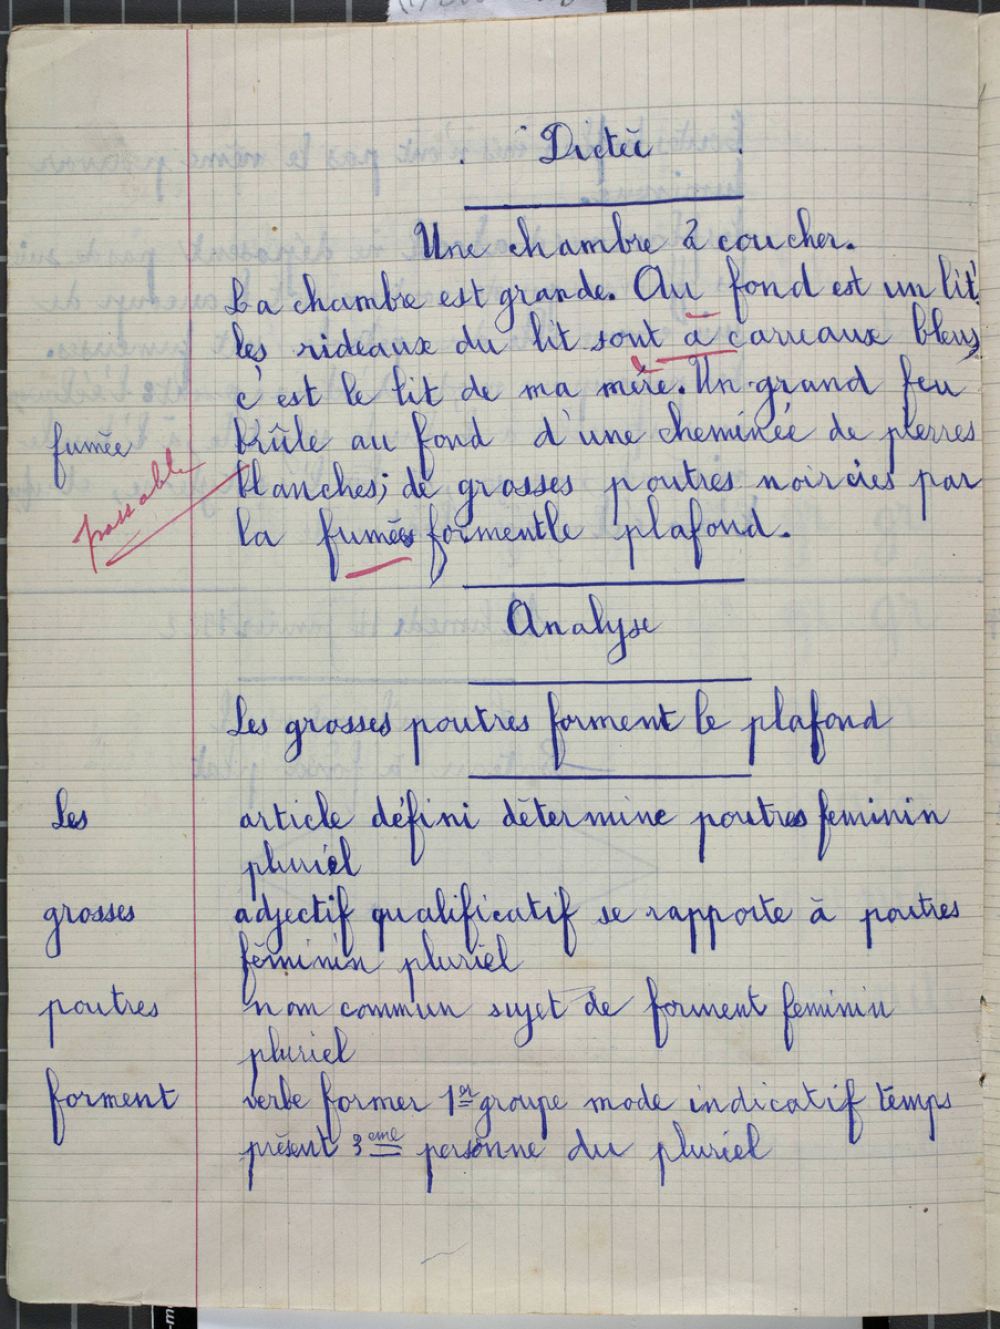 Dictée
Une chambre à coucher.
La chambre est grande. Au fond est un lit.
les rideaux du lit sont à carreaux bleus,
c'est le lit de ma mère. Un grand feu
fumée brûle au fond d'une cheminée de pierres
passable blanches; de grosses poutres noircies par
la fumées forment le plafond.
Analyse
Les grosses poutres forment le plafond
Les article défini détermine poutres feminin
pluriel
grosses adjectif qualificatif se rapporte à poutres
féminin pluriel
poutres nom commun sujet de forment feminin
pluriel
forment verbe former 1er groupe mode indicatif temps
présent 3eme personne du pluriel